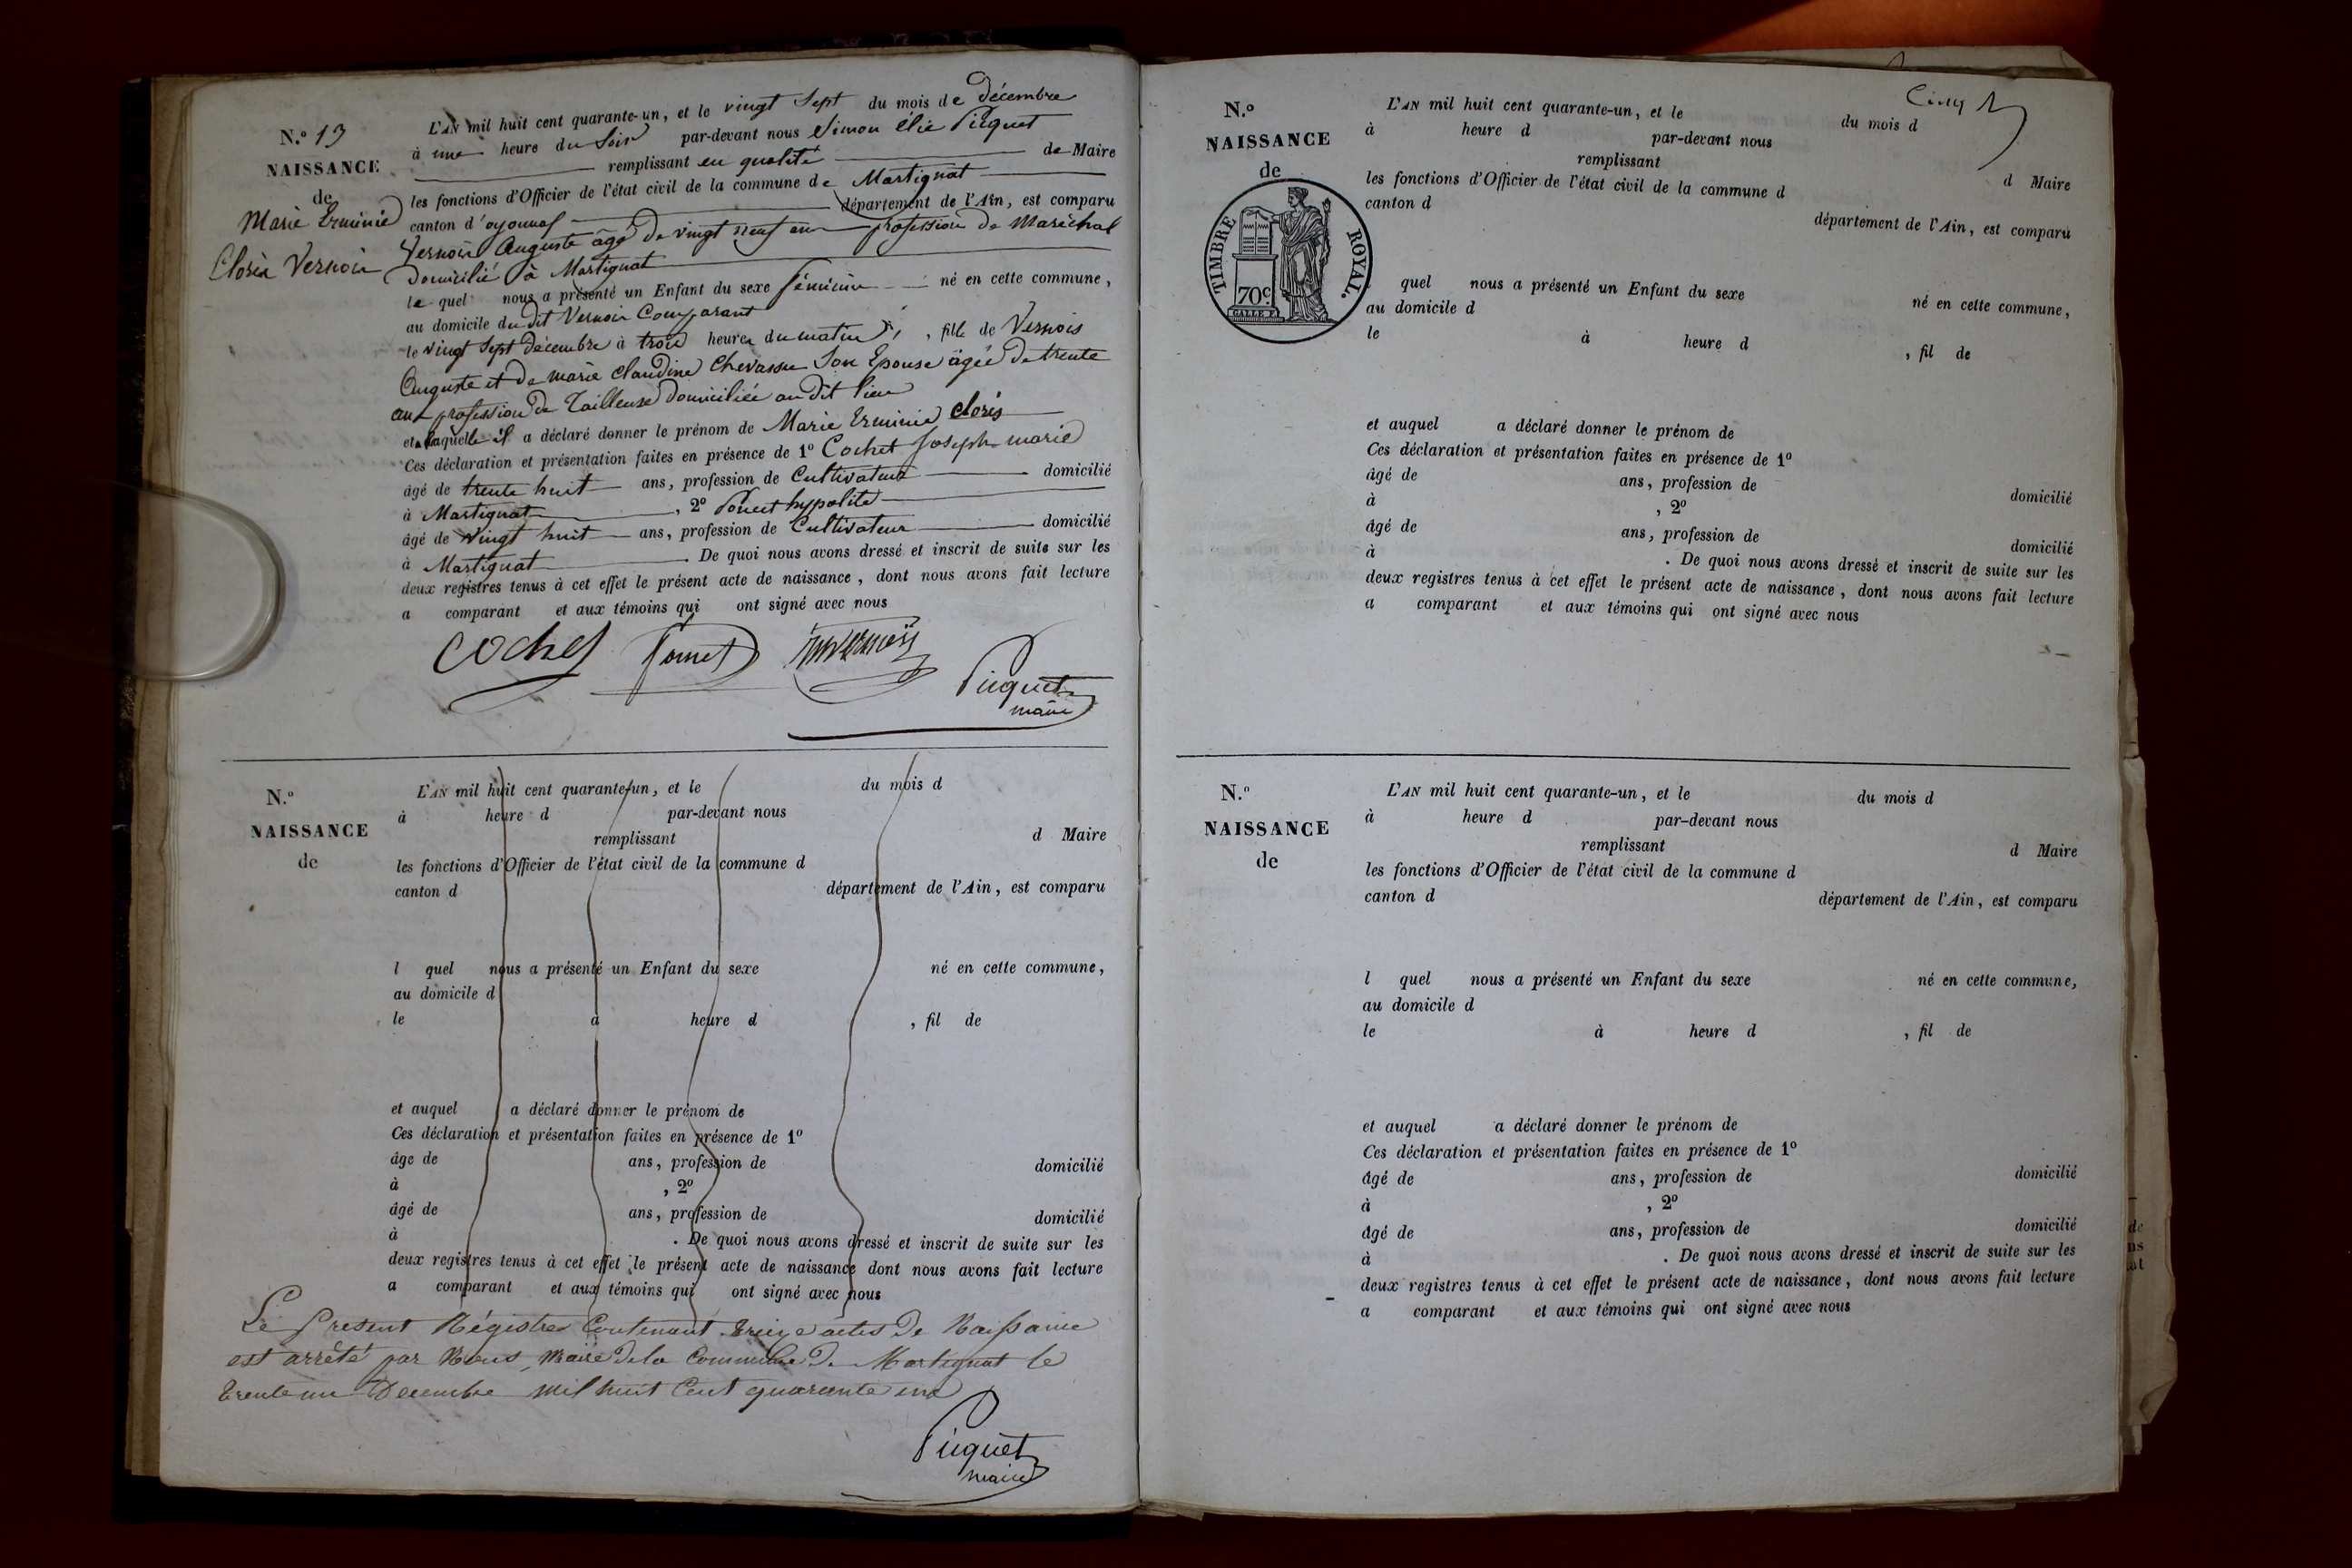 N.º 13
NAISSANCE
de
Marie Erminie
Cloris Vernois
L'AN mil huit cent quarante-un, et le vingt sept du mois de décembre
à une heure du Soir par-devant nous Simon élie Picquet
remplissant en qualité de Maire
les fonctions d'Officier de l'état civil de la commune de Martignat
canton d'oyonnas département de l'Ain, est comparu
Vernois Auguste âgé de vingt neuf ans profession de Maréchal
domicilié à Martignat
le quel nous a présenté un Enfant du sexe féminin né en cette commune,
au domicile du dit Vernois Comparant
le vingt sept décembre à trois heures du matin, fille de Vernois
Auguste et de marie claudine Chevassu Son Epouse âgée de trente
ans profession de Tailleuse domiciliée au dit lieu
et a laquelle il a déclaré donner le prénom de Marie Erminie cloris
Ces déclaration et présentation faites en présence de 1º Cochet Joseph marie
âgé de trente huit ans, profession de Cultivateur domicilié
à Martignat, 2º Poncet hypolite
âgé de vingt huit ans, profession de Cultivateur domicilié
à Martignat. De quoi nous avons dressé et inscrit de suite sur les
deux registres tenus à cet effet le présent acte de naissance, dont nous avons fait lecture
a comparant et aux témoins qui ont signé avec nous
Cochet
Picquet
maire
N.º
NAISSANCE
de
L'AN mil huit cent quarante-un, et le du mois d
à heure d par-devant nous
remplissant d Maire
les fonctions d'Officier de l'état civil de la commune d
canton d département de l'Ain, est comparu
l quel nous a présenté un Enfant du sexe né en cette commune,
au domicile d
le à heure d , fil de
et auquel a déclaré donner le prénom de
Ces déclaration et présentation faites en présence de 1º
âge de ans, profession de domicilié
à , 2º
âgé de ans, profession de domicilié
à . De quoi nous avons dressé et inscrit de suite sur les
deux registres tenus à cet effet le présent acte de naissance dont nous avons fait lecture
a comparant et aux témoins qui ont signé avec nous
Le present Régistre Contenant treize actes de Naissance
est arrêté par Nous, Maire de la Commune de Martignat le
trente un Decembre mil huit Cent quarante un
Picquet
maire
Cinq
N.º
NAISSANCE
de
TIMBRE ROYAL.
70c
L'AN mil huit cent quarante-un, et le du mois d
à heure d par-devant nous
remplissant d Maire
les fonctions d'Officier de l'état civil de la commune d
canton d département de l'Ain, est comparu
quel nous a présenté un Enfant du sexe né en cette commune,
au domicile d
le à heure d , fil de
et auquel a déclaré donner le prénom de
Ces déclaration et présentation faites en présence de 1º
âgé de ans, profession de domicilié
à , 2º
âgé de ans, profession de domicilié
à . De quoi nous avons dressé et inscrit de suite sur les
deux registres tenus à cet effet le présent acte de naissance, dont nous avons fait lecture
a comparant et aux témoins qui ont signé avec nous
N.º
NAISSANCE
de
L'AN mil huit cent quarante-un, et le du mois d
à heure d par-devant nous
remplissant d Maire
les fonctions d'Officier de l'état civil de la commune d
canton d département de l'Ain, est comparu
l quel nous a présenté un Enfant du sexe né en cette commune,
au domicile d
le à heure d , fil de
et auquel a déclaré donner le prénom de
Ces déclaration et présentation faites en présence de 1º
âgé de ans, profession de domicilié
à , 2º
âgé de ans, profession de domicilié
à . De quoi nous avons dressé et inscrit de suite sur les
deux registres tenus à cet effet le présent acte de naissance, dont nous avons fait lecture
a comparant et aux témoins qui ont signé avec nous